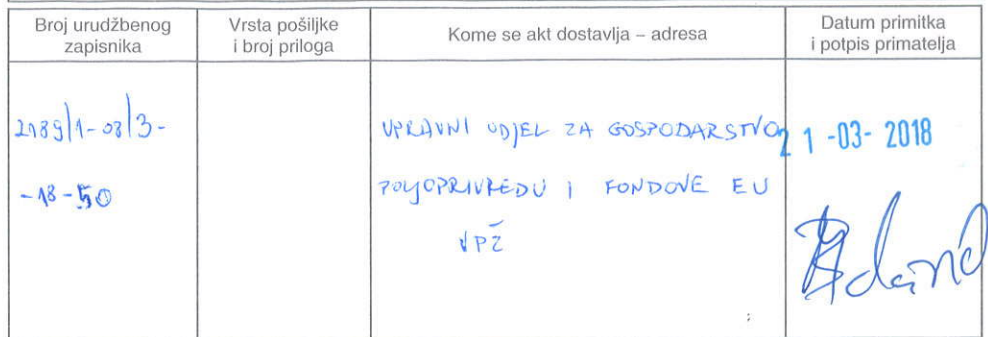 Broj urudžbenog
zapisnika
Vrsta pošiljke
i broj priloga
Kome se akt dostavlja – adresa
Datum primitka
i potpis primatelja
2189/1-08/3-
-18-50
UPRAVNI ODJEL ZA GOSPODARSTVO,
POLJOPRIVREDU I FONDOVE EU
VPŽ
21 -03- 2018